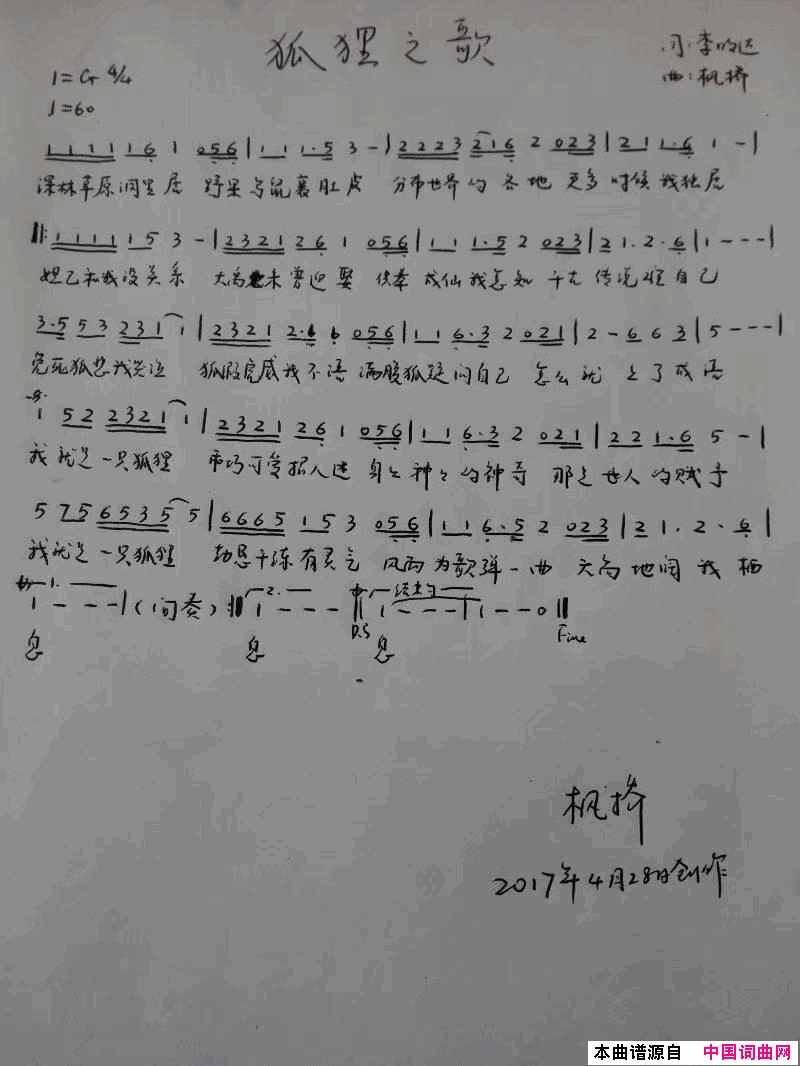 狐狸之歌
词:李明达
曲:枫桥
1=G 4/4
♩=60
1 1 1 1 1 6 1 0 5 6 | 1 1 1·5 3 - | 2 2 2 3 2 1 6 2 0 2 3 | 2 1 1·6 1 - |
深林草原洞里居 野果与鼠裹肚皮 分布世界的各地 更多时候我独居
‖: 1 1 1 1 1 5 3 - | 2 3 2 1 2 6 1 0 5 6 | 1 1 1·5 2 0 2 3 | 2 1·2·6 | 1 - - - |
妲己和我没关系 大禹未曾迎娶 供奉成仙我怎知 千古传说难自己
3·5 5 3 2 3 1 1 | 2 3 2 1 2·6 6 0 5 6 | 1 1 6·3 2 0 2 1 | 2 - 6 6 3 | 5 - - - |
兔死狐悲我哭泣 狐假虎威我不语 满腹狐疑问自己 怎么就上了成语
1 5 2 2 3 2 1 1 | 2 3 2 1 2 6 1 0 5 6 | 1 1 6·3 2 0 2 1 | 2 2 1·6 5 - |
我就是一只狐狸 乖巧可爱招人迷 身上神神的神奇 那是世人的赋予
5 7 5 6 5 3 5 5 | 6 6 6 5 1 5 3 0 5 6 | 1 1 6·5 2 0 2 3 | 2 1·2·6 |
我就是一只狐狸 干练有灵气 风雨为歌弹一曲 天高地阔我栖
1. 1 - - - | (间奏) :‖ 2. 1 - - - ‖ 结束句 1 - - - | 1 - - 0 ‖
D.S Fine
息 息 息
枫桥
2017年4月28日创作
本曲谱源自 中国词曲网